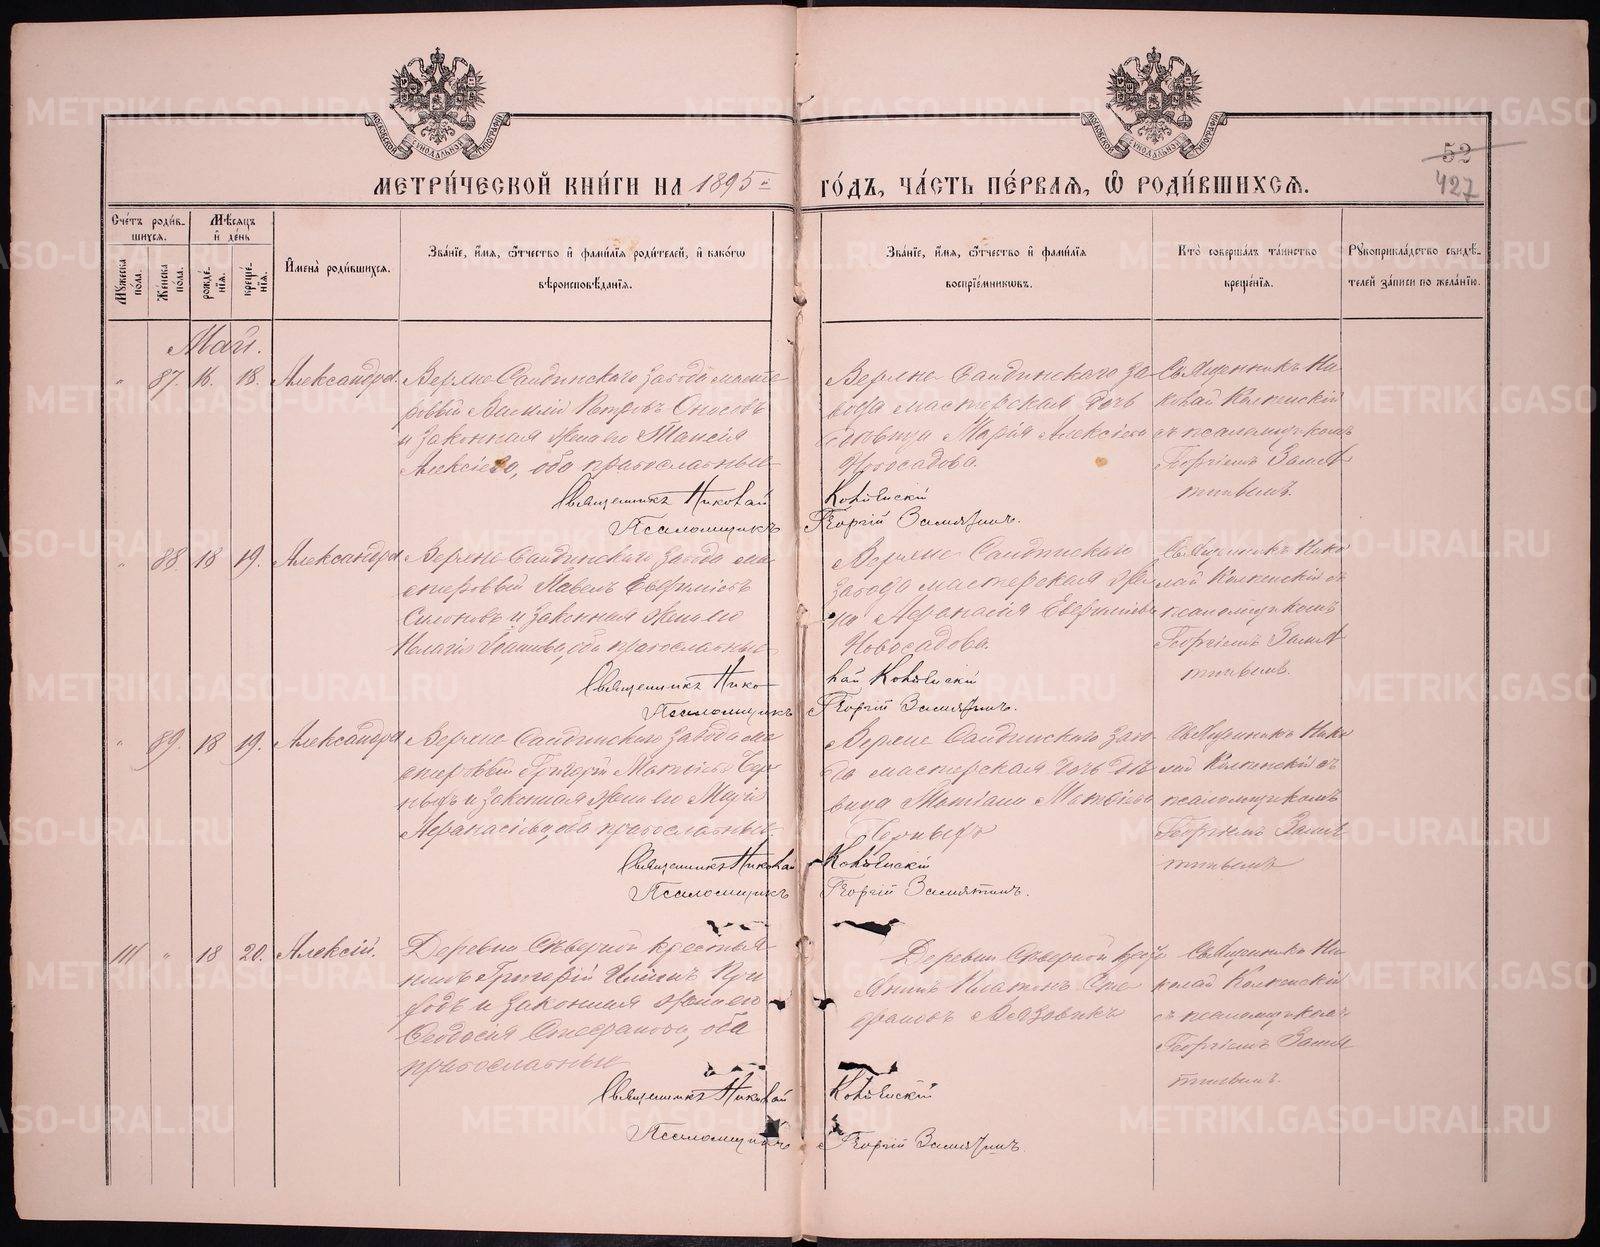 52
427
МЕТРИ́ЧЕСКОЙ КНИ́ГИ НА 1895й ГО́ДЪ, ЧА́СТЬ ПЕ́РВАЯ, Ѡ РОДИ́ВШИХСЯ.
Сче́тъ роди́в-
шихся.
Мꙋжеска по́ла.
Же́нска по́ла.
Мѣ́сяцъ
и҆ день
рожде́нїя.
креще́нїя.
И҆мена̀ роди́вшихся.
Зва́нїе, и҆́мя, ѻ҆́тчество и҆ фами́лїя роди́телей, и҆ како́гѡ
вѣроисповѣ́данїя.
Зва́нїе, и҆́мя, ѻ҆́тчество и҆ фами́лїя
воспрїе́мникѡвъ.
Кто̀ соверша́лъ та́инство
креще́нїя.
Рꙋкоприкла́дство свидѣ́-
телей за́писи по жела́нїю.
Май.
" 87. 16. 18. Александра.
Верхне Салдинскаго завода масте-
ровый Василій Петровъ
и законная жена его Таисія
Алексіева, оба православные
Верхне Салдинскаго за-
вода мастерская дочь
дѣвица Марія Алексіева
Новосадова.
Священникъ Ни-
колай
съ псаломщикомъ
Георгіемъ Замя-
тинымъ.
Священникъ Николай
Псаломщикъ Георгій Замятинъ.
" 88. 18 19. Александра
Верхне Салдинскаго завода ма-
стеровый Павелъ
и законная жена его
Пелагія оба православные
Верхне Салдинскаго
завода мастерская же-
на Афанасія
Новосадова.
Священникъ Нико-
лай съ
псаломщикомъ
Георгіемъ Замя-
тинымъ.
Священникъ Николай
Псаломщикъ Георгій Замятинъ.
" 89. 18 19. Александра
Верхне Салдинскаго завода ма-
стеровый Григорій
и законная жена его Марія
Афанасіева, оба православные.
Верхне Салдинскаго заво-
да мастерская дочь дѣ-
вица Татіана
Священникъ Нико-
лай съ
псаломщикомъ
Георгіемъ Замя-
тинымъ
Священникъ Николай
Псаломщикъ Георгій Замятинъ.
111 " 18 20. Алексій.
Деревни Сѣверной крестья-
нинъ Григорій
и законная жена его
Ѳеодосія Стефанова, оба
православные
Деревни Сѣверной кресть-
янинъ Платонъ Сте-
фановъ
Священникъ Ни-
колай
съ псаломщикомъ
Георгіемъ Замя-
тинымъ.
Священникъ Николай
Псаломщикъ Георгій Замятинъ.
METRIKI.GASO-URAL.RU